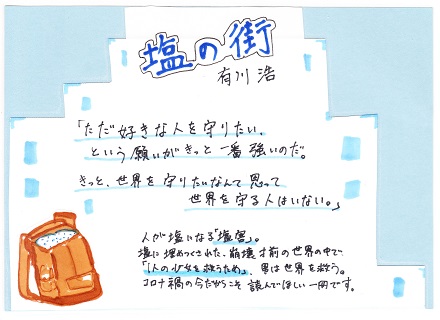 塩の街
有川 浩
「ただ好きな人を守りたい、
という願いがきっと一番強いのだ。
きっと、世界を守りたいなんて思って
世界を守る人はいない。」
人が塩になる「塩害」。
塩に埋めつくされた、崩壊寸前の世界の中で
「1人の少女を救うため」、男は世界を救う。
コロナ禍の今だからこそ 読んでほしい一冊です。